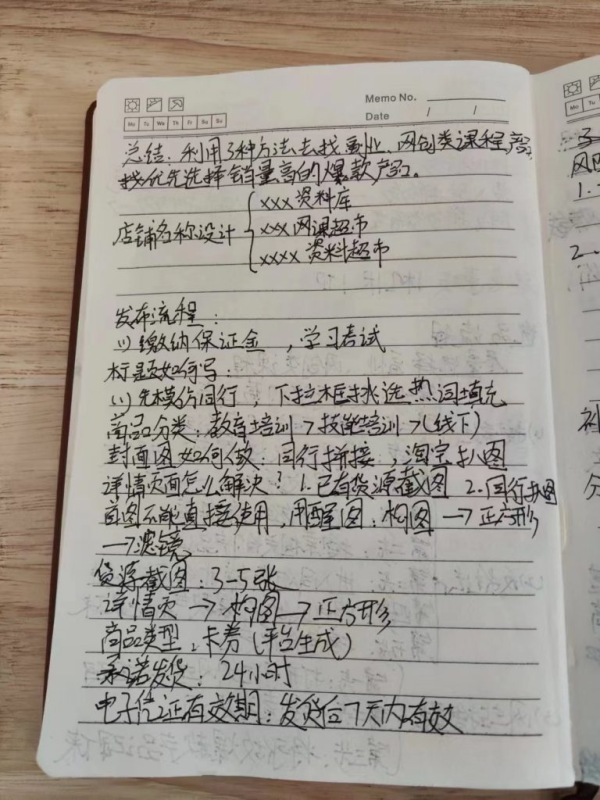 Memo No.
Mo Tu We Th Fr Sa Su
Date / /
总结：利用3种方法去找副业、网创类课程，
优先选择销量高的爆款产品。
店铺名称设计
xxx 资料库
xxx 网课超市
xxxx 资料超市
发布流程：
(1) 缴纳保证金，学习考试
标题如何写：
(1) 先模仿同行，下拉框挑选热词填充
商品分类：教育培训>技能培训>(线下)
封面图如何做：同行拼接，淘宝扒图
详情页面怎么解决？1.已有货源截图 2.同行扒图
图不能直接使用，用醒图：构图→正方形
→滤镜
货源截图：3-5张
详情页→构图→正方形
商品类型：卡券(平台生成)
承诺发货：24小时
电子凭证有效期：发货后7天内有效